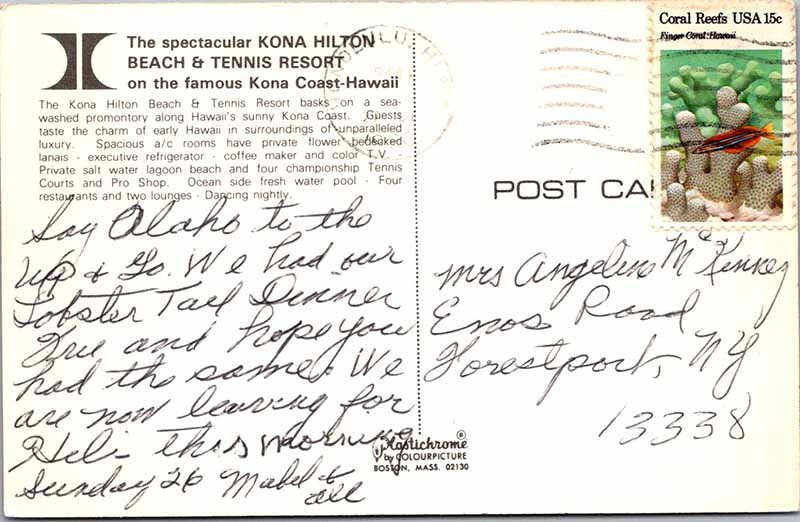 The spectacular KONA HILTON
BEACH & TENNIS RESORT
on the famous Kona Coast-Hawaii
The Kona Hilton Beach & Tennis Resort basks on a sea-
washed promontory along Hawaii's sunny Kona Coast. Guests
taste the charm of early Hawaii in surroundings of unparalleled
luxury. Spacious a/c rooms have private flower bedecked
lanais - executive refrigerator - coffee maker and color T.V.
Private salt water lagoon beach and four championship Tennis
Courts and Pro Shop. Ocean side fresh water pool - Four
restaurants and two lounges - Dancing nightly.
Say Alaho to the
Up & Go. We had our
Lobster Tail Dinner
Free and hope you
had the same. We
are now leaving for
this morning
Sunday 26 Mabel &
all
HONOLULU, HI
Coral Reefs USA 15c
Finger Coral: Hawaii
POST CA
Mrs Angeline McKinney
Enos Road
Forestport, NY
13338
Plastichrome®
by COLOURPICTURE
BOSTON, MASS. 02130